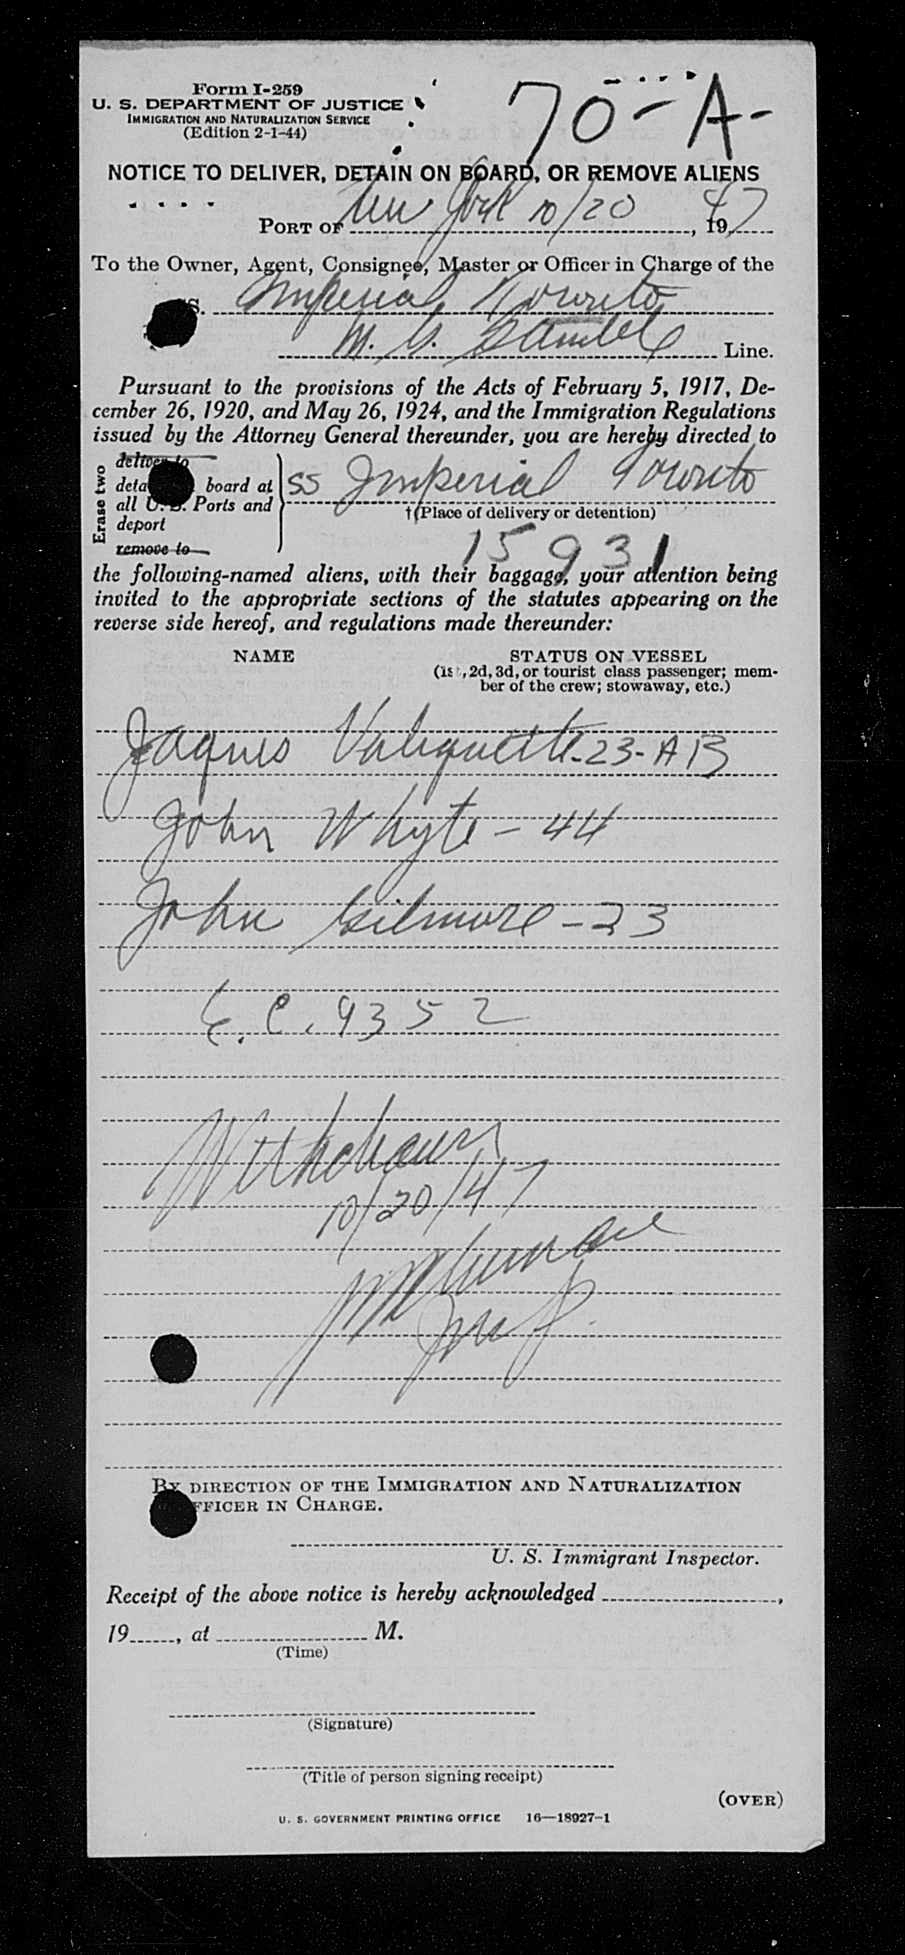 Form I-259
U. S. DEPARTMENT OF JUSTICE
IMMIGRATION AND NATURALIZATION SERVICE
(Edition 2-1-44)
70-A-
NOTICE TO DELIVER, DETAIN ON BOARD, OR REMOVE ALIENS
PORT OF New York 10/20, 1947
To the Owner, Agent, Consignee, Master or Officer in Charge of the
S. Imperial Toronto
M. G. Line.
Pursuant to the provisions of the Acts of February 5, 1917, De-
cember 26, 1920, and May 26, 1924, and the Immigration Regulations
issued by the Attorney General thereunder, you are hereby directed to
Erase two
deliver to
deta board at
all U. S. Ports and
deport
remove to
SS Imperial Toronto
†(Place of delivery or detention)
15931
the following-named aliens, with their baggage, your attention being
invited to the appropriate sections of the statutes appearing on the
reverse side hereof, and regulations made thereunder:
NAME STATUS ON VESSEL
(1st, 2d, 3d, or tourist class passenger; mem-
ber of the crew; stowaway, etc.)
Jaques Valiquette-23-AB
John Whyte - 44
John Gilmore - 23
C. 9352
Withdrawn
10/20/47
BY DIRECTION OF THE IMMIGRATION AND NATURALIZATION
OFFICER IN CHARGE.
U. S. Immigrant Inspector.
Receipt of the above notice is hereby acknowledged ,
19 , at M.
(Time)
(Signature)
(Title of person signing receipt)
(OVER)
U. S. GOVERNMENT PRINTING OFFICE 16—18927-1